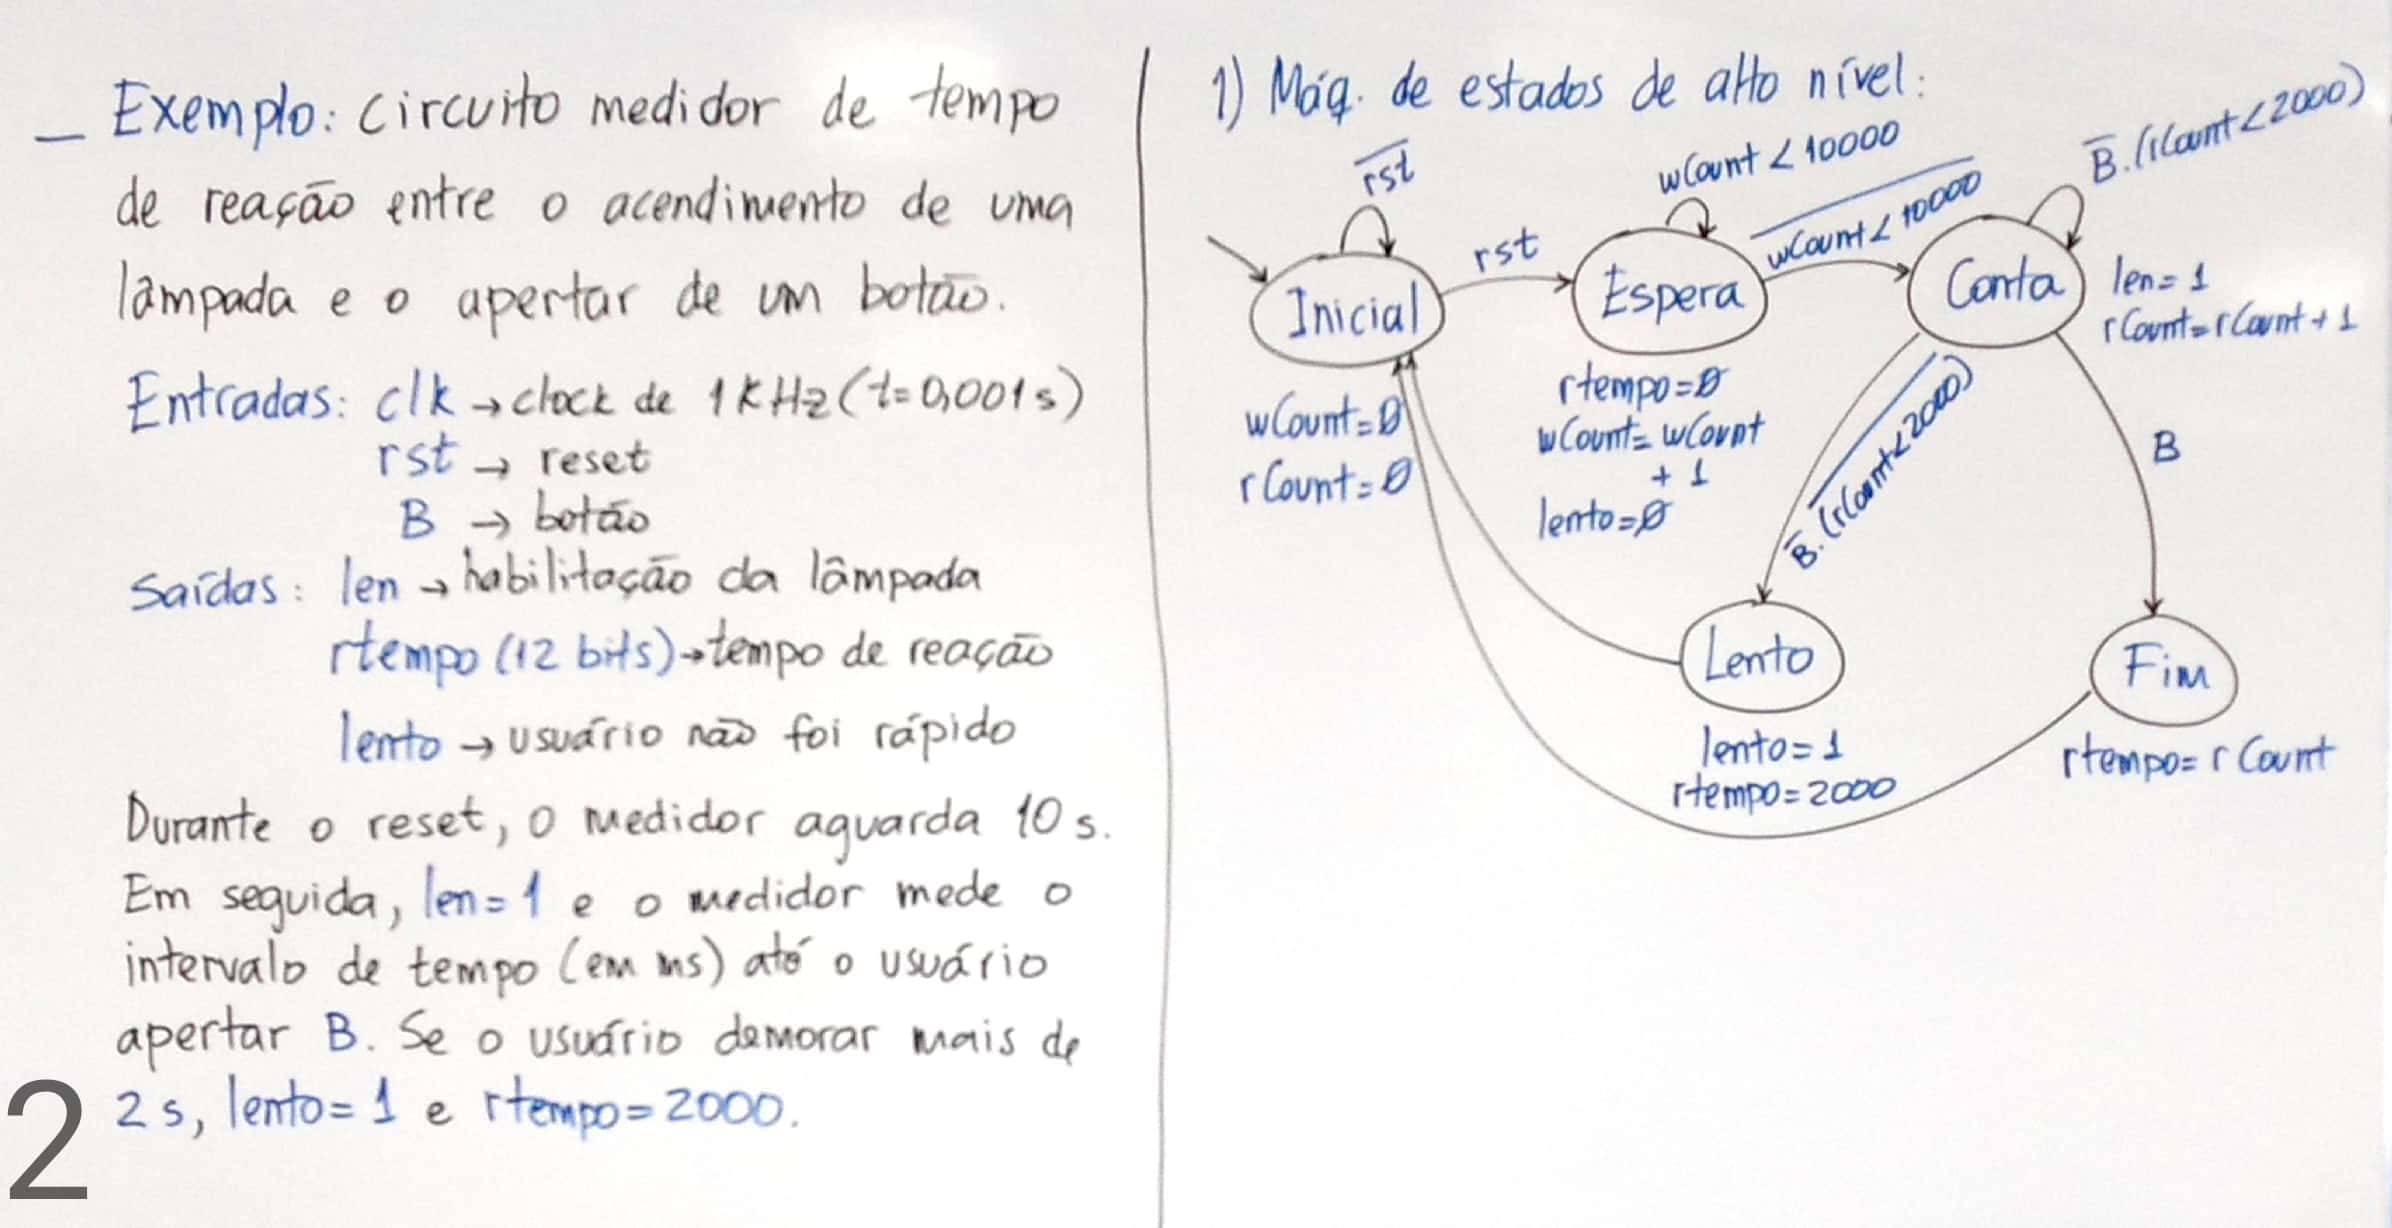 _ Exemplo: circuito medidor de tempo
de reação entre o acendimento de uma
lâmpada e o apertar de um botão.
Entradas: clk → clock de 1KHz (t=0,001s)
rst → reset
B → botão
Saídas: len → habilitação da lâmpada
rtempo (12 bits) → tempo de reação
lento → usuário não foi rápido
Durante o reset, o medidor aguarda 10s.
Em seguida, len=1 e o medidor mede o
intervalo de tempo (em ms) até o usuário
apertar B. Se o usuário demorar mais de
2s, lento=1 e rtempo=2000.
2
1) Máq. de estados de alto nível:
r̅s̅t̅
wCount < 10000
B̅.(rCount<2000)
rst
w̅C̅o̅u̅n̅t̅ ̅<̅ ̅1̅0̅0̅0̅0̅
Inicial
Espera
Conta
len=1
rCount=rCount+1
wCount=0
rCount=0
rtempo=0
wCount=wCount
+1
lento=0
B̅.(̅r̅C̅o̅u̅n̅t̅<̅2̅0̅0̅0̅)̅
B
Lento
Fim
lento=1
rtempo=2000
rtempo=rCount